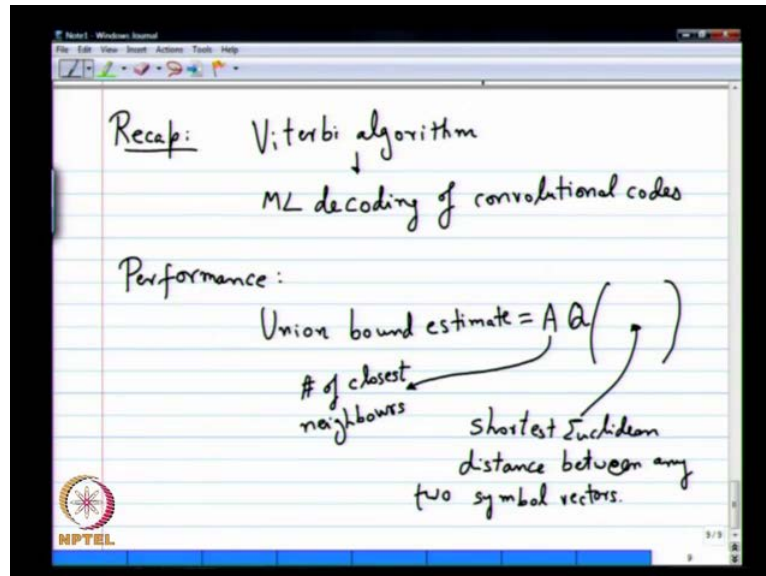 Note1 - Windows Journal
File Edit View Insert Actions Tools Help
Recap: Viterbi algorithm
ML decoding of convolutional codes
Performance:
Union bound estimate = A Q( )
# of closest
neighbours
shortest Euclidean
distance between any
two symbol vectors.
NPTEL
9/9
9